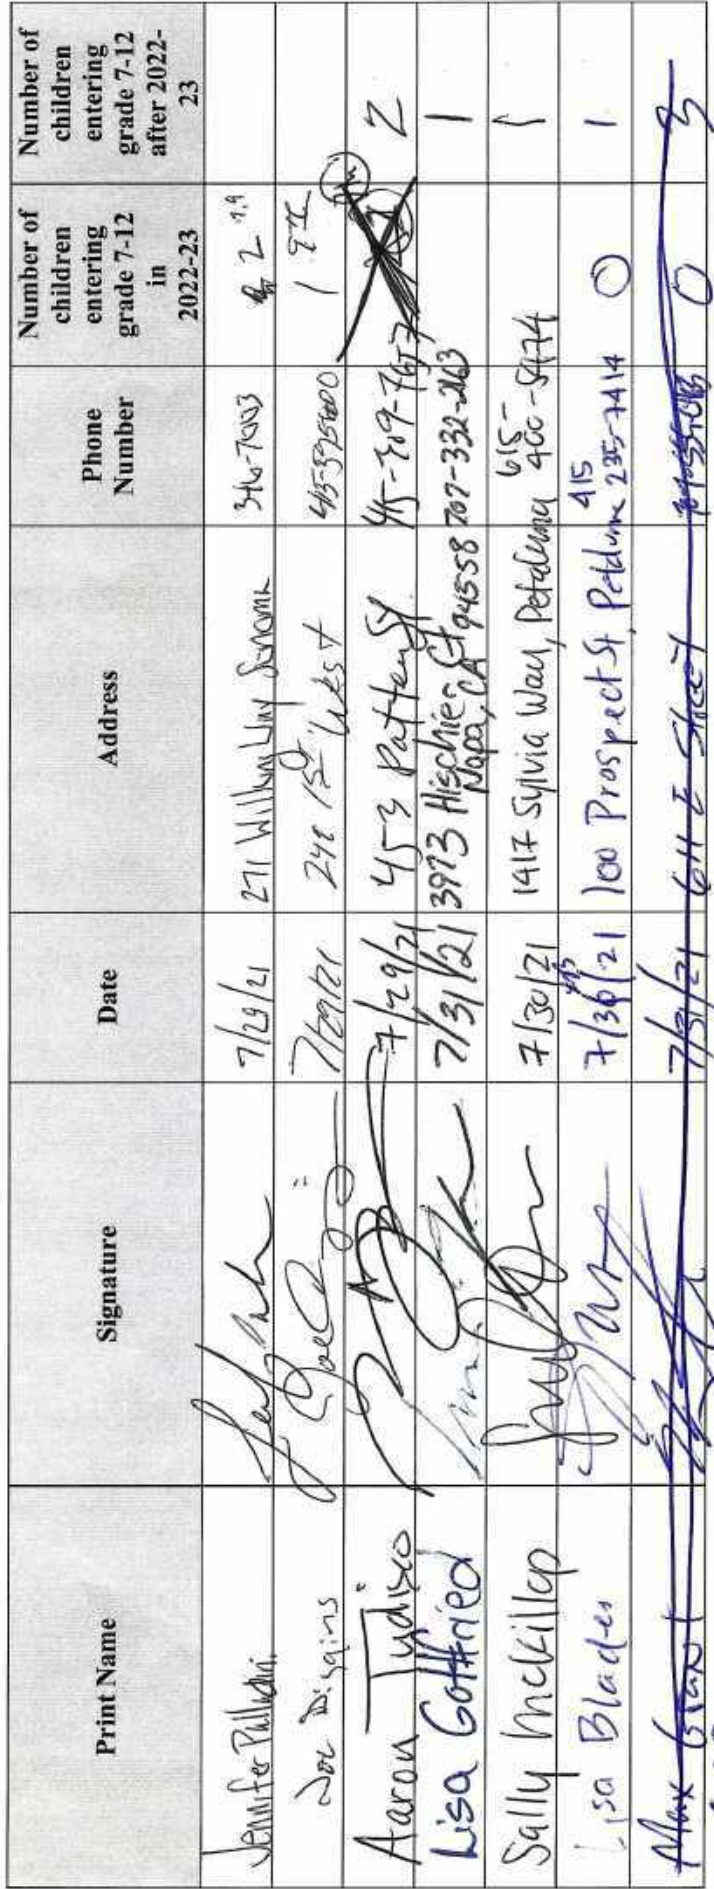 Print Name
Signature
Date
Address
Phone
Number
Number of
children
entering
grade 7-12
in
2022-23
Number of
children
entering
grade 7-12
after 2022-
23
Jennifer
7/29/21
271 Way Sonoma
2
Joe
7/29/21
248 1st West
1
Aaron Tudisco
7/29/21
453 Patten St
2
Lisa Gottfried
7/31/21
3973 Hischier Ct
Napa, CA 94558
707-332-2163
1
Sally McKillop
7/30/21
1417 Sylvia Way, Petaluma
615-
400-5474
1
Lisa Blades
7/30/21
100 Prospect St, Petaluma
415
235-7414
0
1
Max Grant
7/31/21
611 E Street
0
3